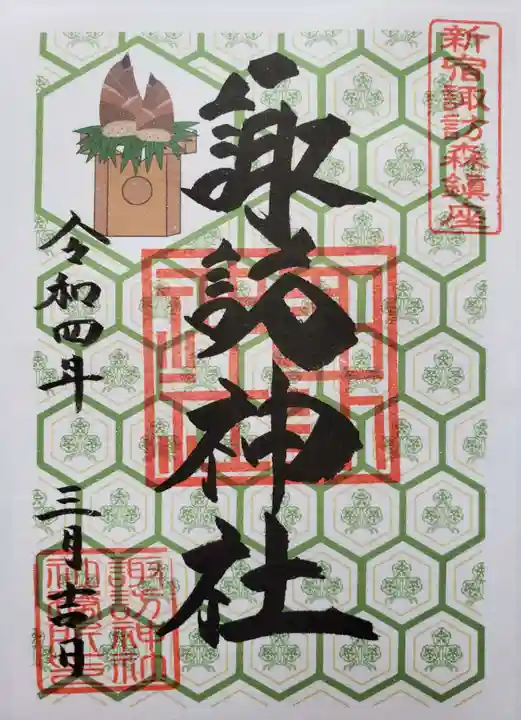 新宿諏訪森鎮座
諏訪神社
令和四年 三月吉日
諏訪神社